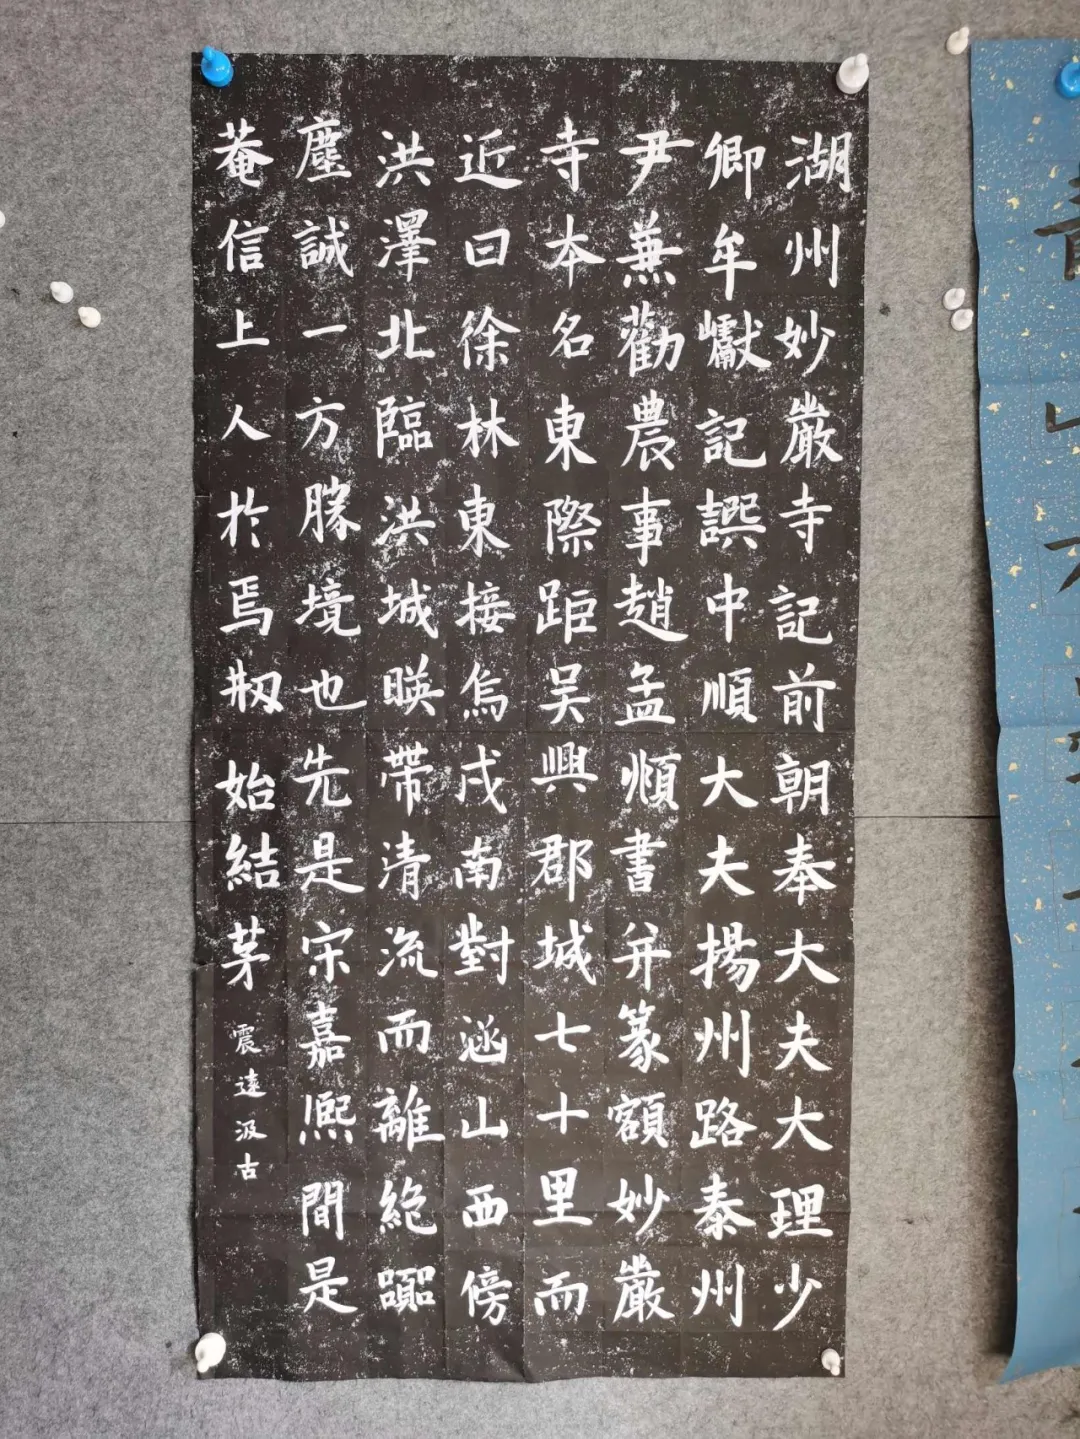 湖州妙嚴寺記前朝奉大夫大理少
卿牟巘記譔中順大夫揚州路泰州
尹兼勸農事趙孟頫書并篆額妙嚴
寺本名東際距吳興郡城七十里而
近曰徐林東接烏戍南對涵山西傍
洪澤北臨洪城暎帶清流而離絕囂
塵誠一方勝境也先是宋嘉熙間是
菴信上人於焉刱始結茅
震遠汲古